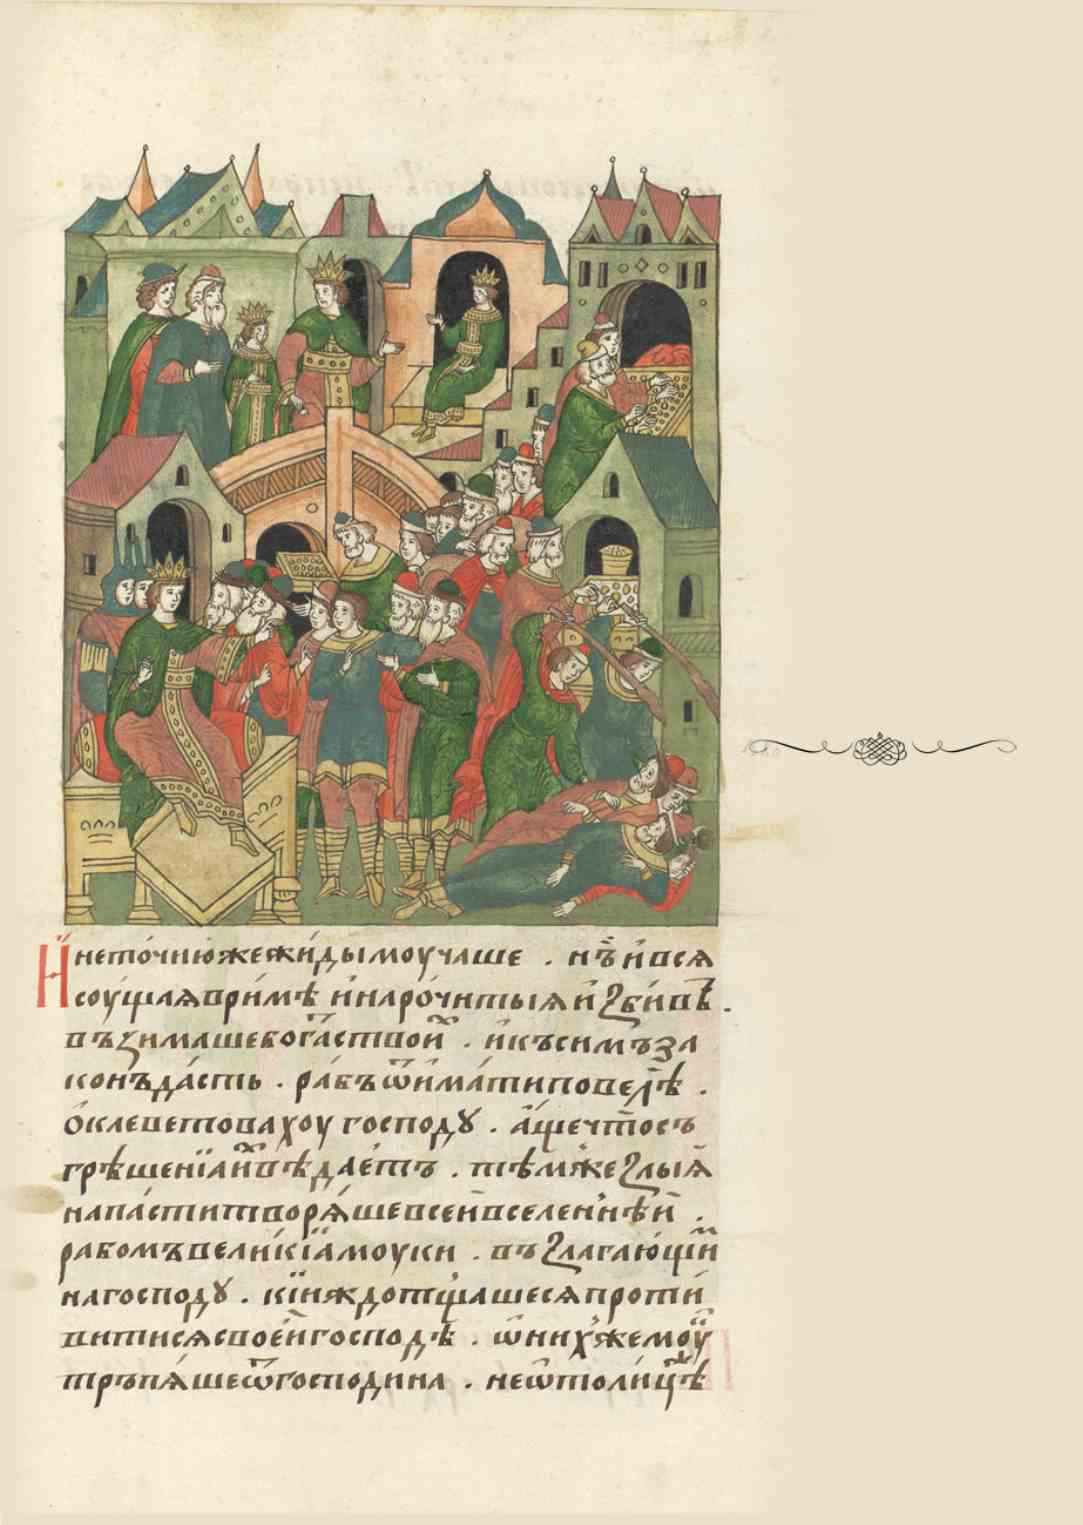 И҆ не то́чию же жи́ды моучаше . нъ̀ и҆ вся
соу́щаѧ в ри́мѣ и҆ наро́читыѧ и҆ ꙁби́въ .
въꙁимаше бога́ствои҆х . и҆ къ симъ за
конъ да́сть . ра́бъ ѿ има́ти повелѣ̀ .
ѻ҆клеветоваху господꙋ . а҆́ще что съ
грѣшенїа и҆х вѣдае́тъ . тѣм же ꙁлыѧ̀
напа́сти творѧ́ше всеи҆ вселеннѣи҆ .
рабомъ вели́кїѧ моуки . въꙁлагаю́щим
на господꙋ . кі́иждо тща́шеся проти́
витися своеи҆ господѣ . ѿ ни́х же моу̀
тръпѧ́ше ѿ господина . не ѿ толи́цѣх